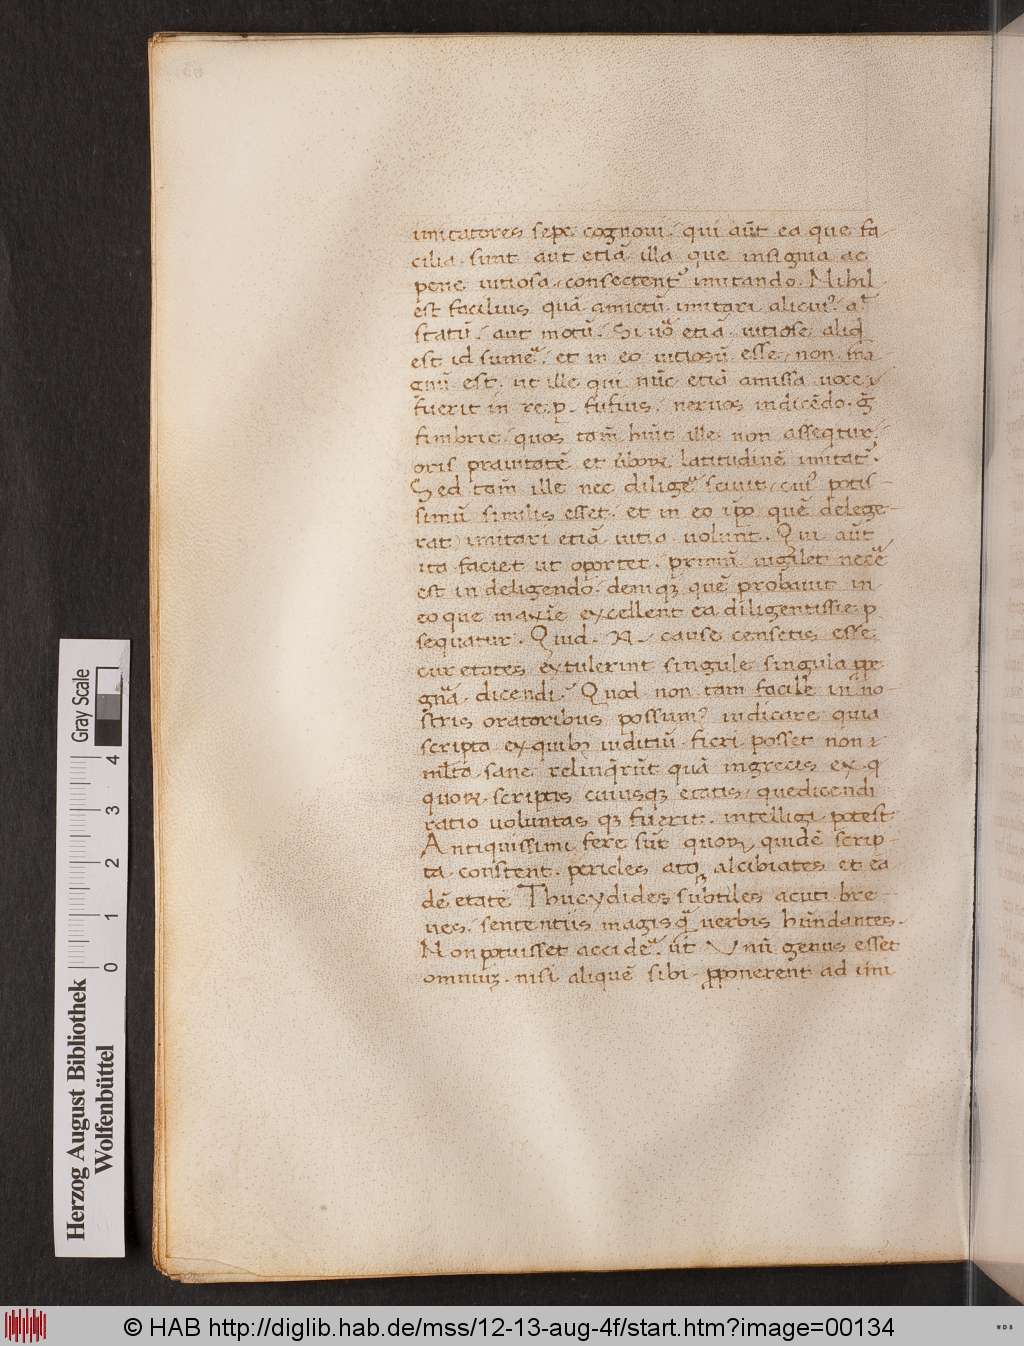 imitatores sepe cognoui. qui aūt ea que fa
cilia sunt aut etiā illa que insignia ac
pene uitiosa consectent᷑ imitando. Nihil
est facilius quā amictū imitari alicui᷒ a᷑
statū. aut motū. Si uo᷑ etiā uitiose aliqd
est id sume᷑. et in eo uitiosū esse, non ma
gnū est. ut ille qui nūc etiā amissa uoce
fuerit in re.p. fufius. neruos in dicēdo. g̃
fimbrie quos tam̄ hūit ille non asseqtur,
oris prauitatē et ūborꝝ latitudinē imitat᷑.
Sed tam̄ ille nec dilige᷑ sciuit, cui᷒ potis-
simū similis esset. et in eo ip̄o quē delege-
rat imitari etiā uitia uoluit. Qui aūt
ita faciet ut oportet. primū uigilet necē
est in deligendo. deinqꝫ quē probauit in
eo que maxīe excellent ea diligentissīe p
sequatur. Quid. N. cause censetis esse
cur etates extulerint singule singula ꝓpe
gn̄a dicendi. Quod non tam facile in no-
stris oratoribus possum᷒ iudicare quia
scripta ex quibꝫ iuditiū fieri posset non
ml̄ta sane relinqr̄ūt quā in grecis ex q
quorꝝ scriptis cuiusqꝫ etatis, que dicendi
ratio uoluntas qꝫ fuerit. intelligi potest
Antiquissimi fere sūt quorꝝ quidē scrip-
ta constent. pericles atqꝫ alcibiates et ea
dē etate Thucydides subtiles acuti bre-
ues. sententiis magis q̄ uerbis hūndantes.
Non potuisset accide᷑ ūt Vnū genus esset
omniuꝫ. nisi aliquē sibi ꝓponerent ad imi
Herzog August Bibliothek
Wolfenbüttel
Gray Scale
0 1 2 3 4
© HAB http://diglib.hab.de/mss/12-13-aug-4f/start.htm?image=00134